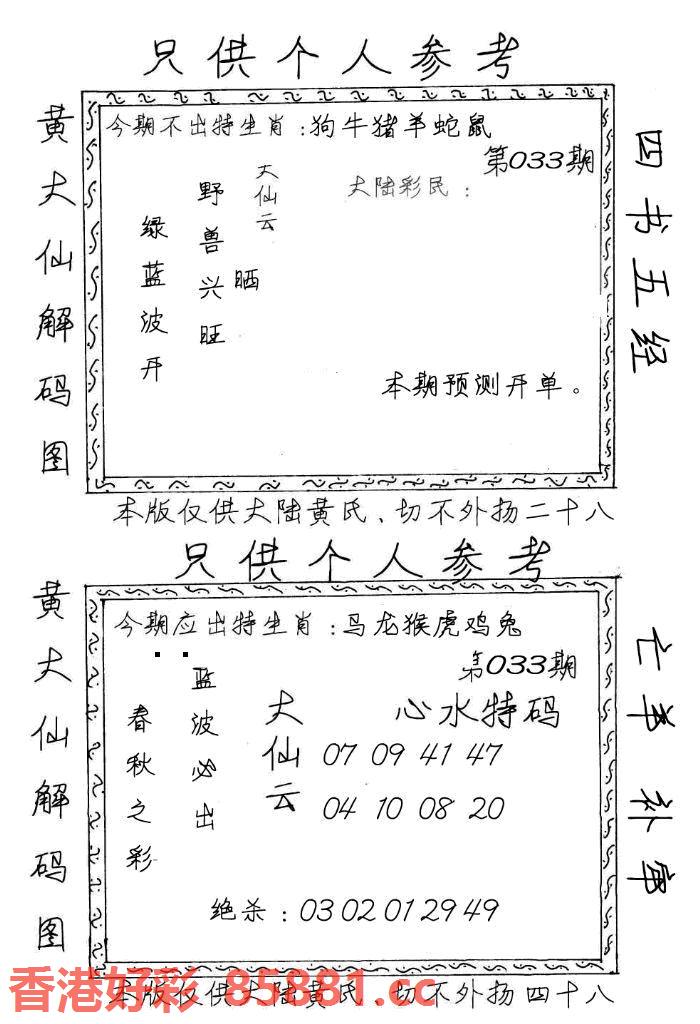 只供个人参考
黄大仙解码图
今期不出特生肖:狗牛猪羊蛇鼠
第033期
大仙云
大陆彩民:
野兽兴旺
晒
绿蓝波开
本期预测开单。
四书五经
本版仅供大陆黄氏、切不外扬二十八
只供个人参考
黄大仙解码图
今期应出特生肖:马龙猴虎鸡兔
第033期
蓝波必出
春秋之彩
大仙云
心水特码
07 09 41 47
04 10 08 20
绝杀:03 02 01 29 49
亡羊补牢
香港好彩 85881.cc
本版仅供大陆黄氏、切不外扬四十八